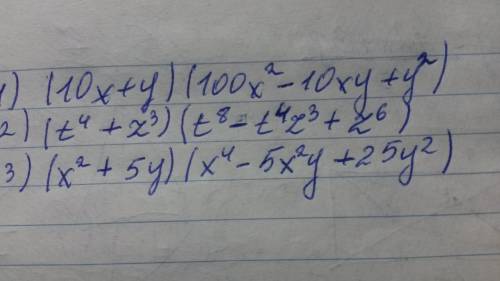 1) (10x+y)(100x²-10xy+y²)
2) (t⁴+z³)(t⁸-t⁴z³+z⁶)
3) (x²+5y)(x⁴-5x²y+25y²)